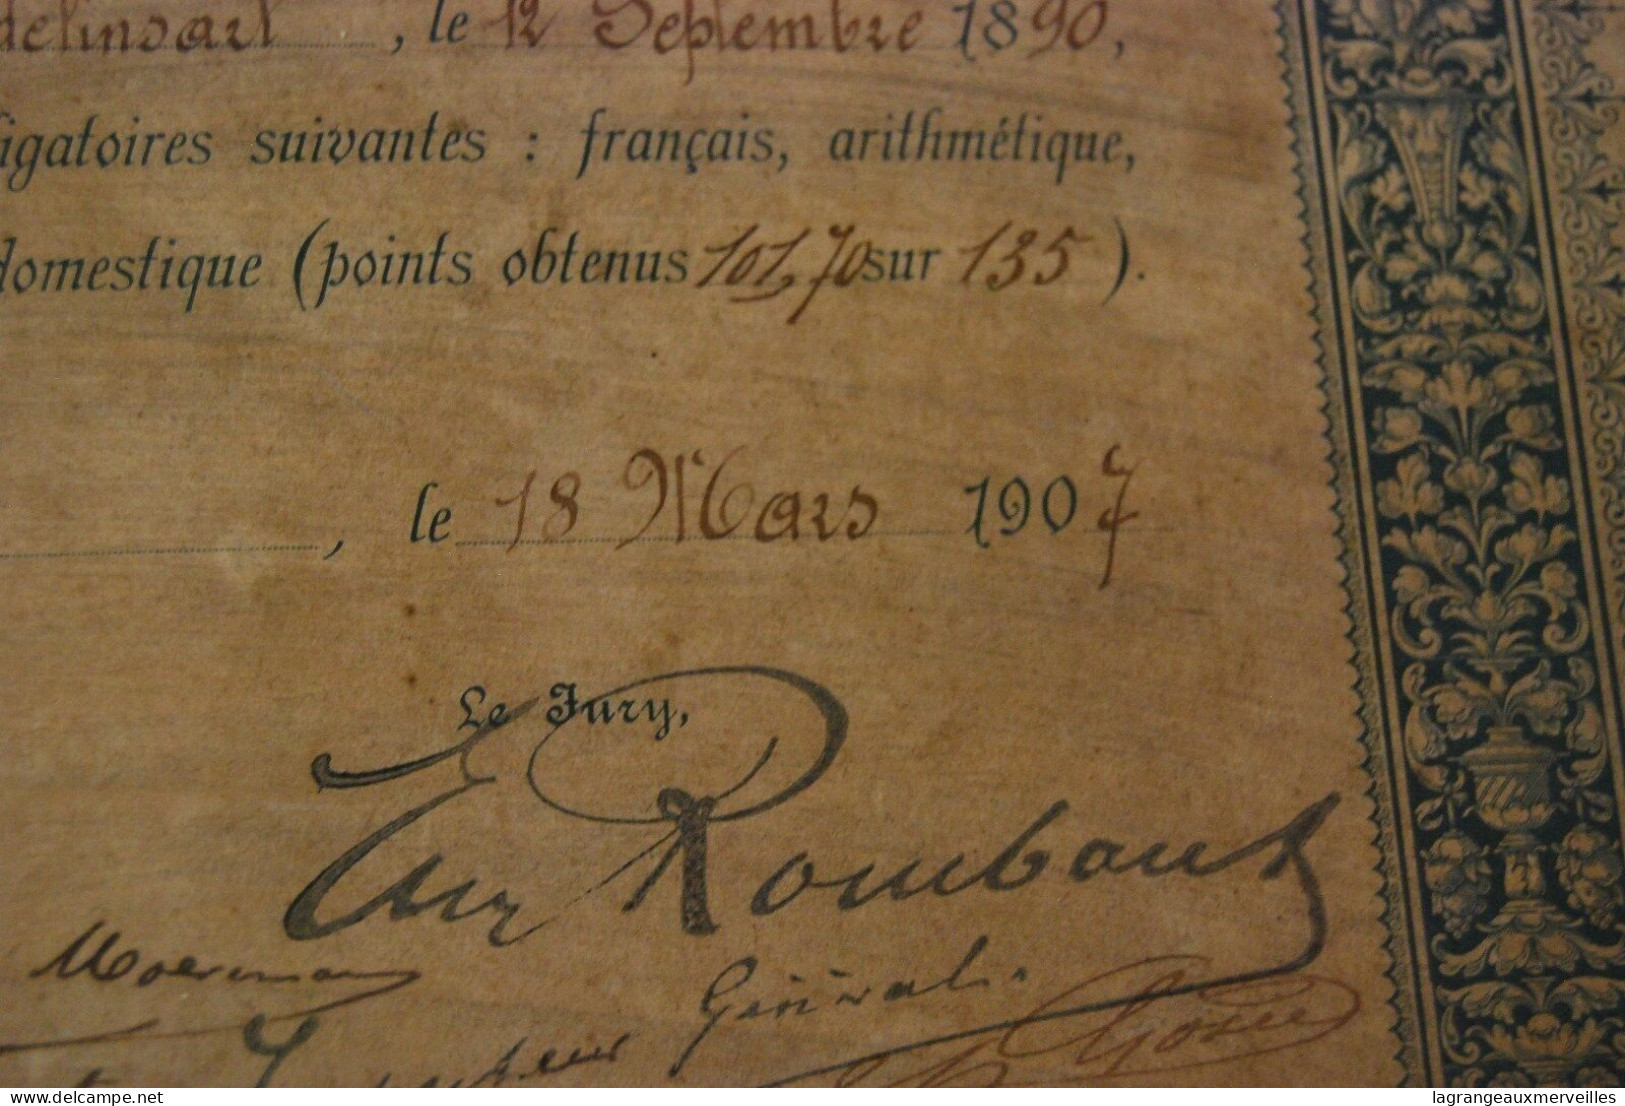 delinsart, le 12 Septembre 1890,
igatoires suivantes : français, arithmétique,
domestique (points obtenus 101,70 sur 135).
, le 18 Mars 1907
Le Jury,
Em Rombaut
Moerman
Général.
lagrangeauxmerveilles